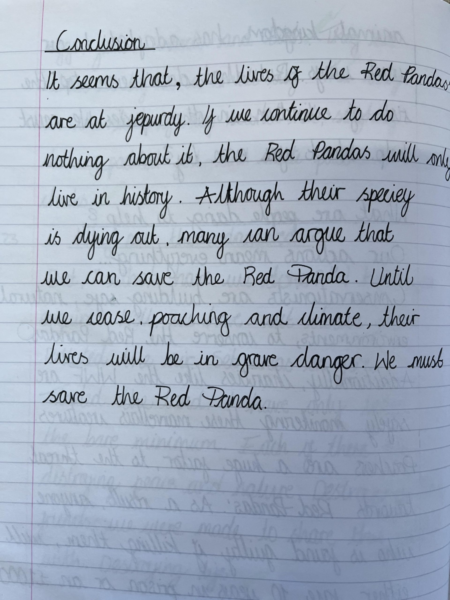 Conclusion
It seems that, the lives of the Red Pandas
are at jepurdy. If we continue to do
nothing about it, the Red Pandas will only
live in history. Although their speciey
is dying out, many can argue that
we can save the Red Panda. Until
we cease, poaching and climate, their
lives will be in grave danger. We must
save the Red Panda.